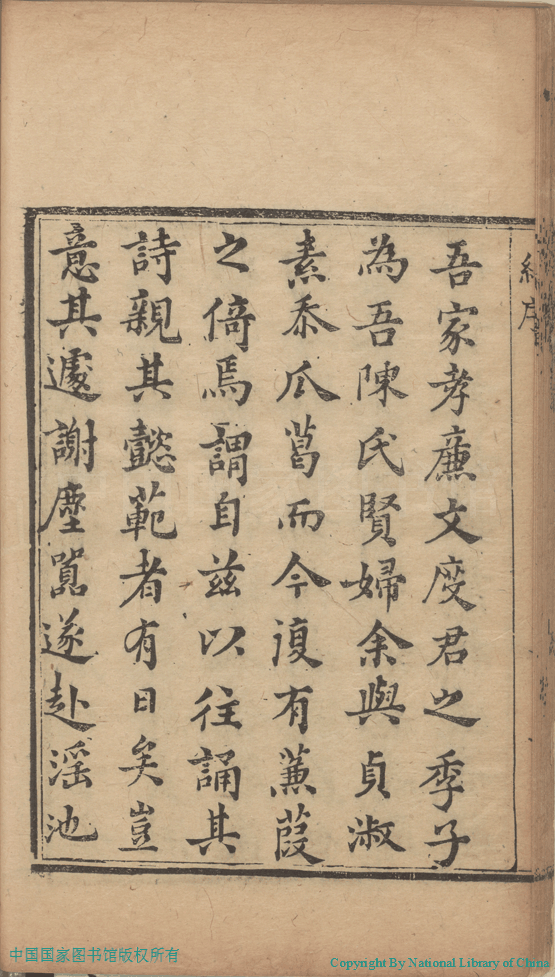 吾家孝廉文度君之季子
為吾陳氏賢婦余與貞淑
素忝瓜葛而今復有蒹葭
之倚焉謂自茲以往誦其
詩親其懿範者有日矣豈
意其遽謝塵嚣遂赴滛池
中国国家图书馆版权所有
Copyright By National Library of China